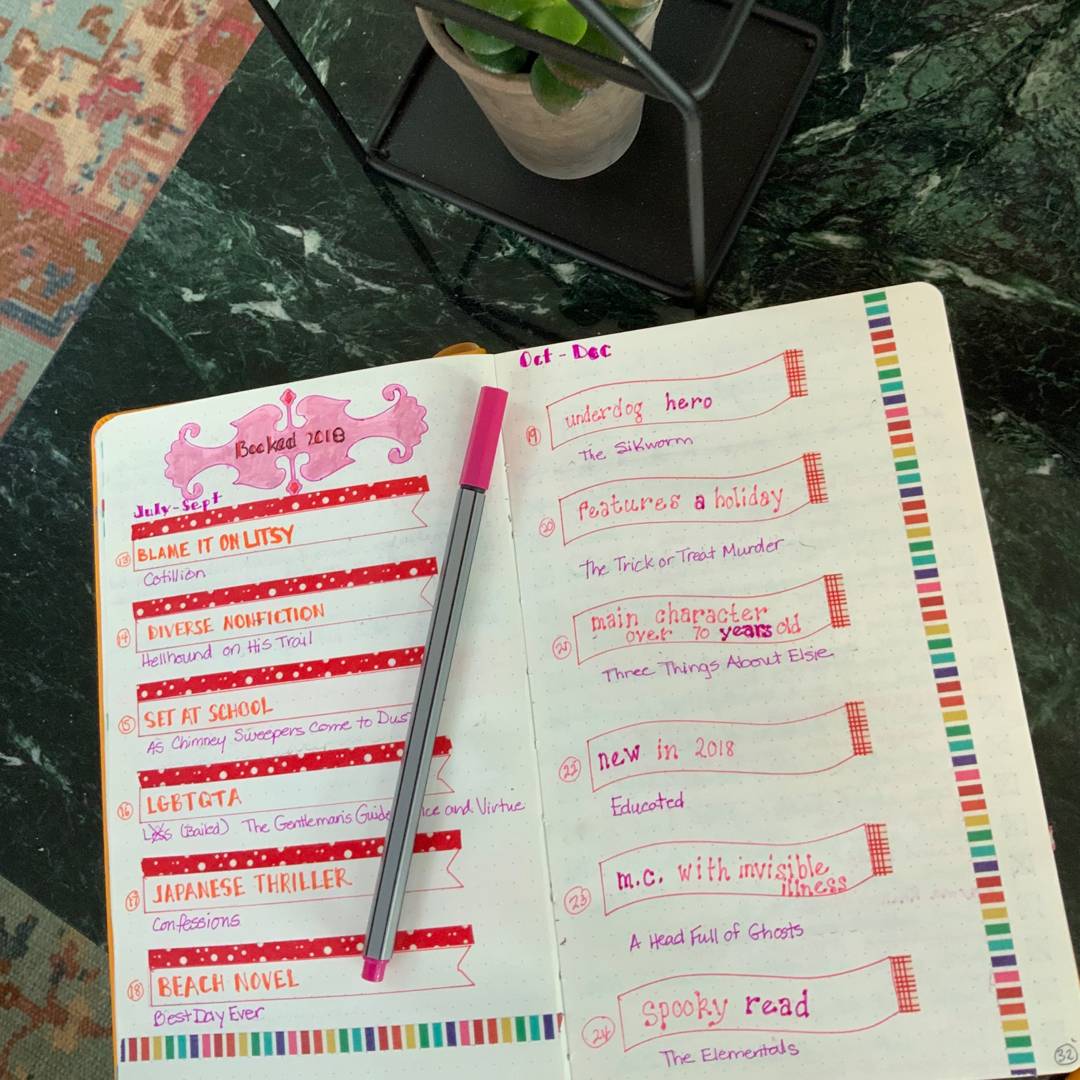 Booked 2018
July-Sept
13 BLAME IT ON LITSY
Cotillion
14 DIVERSE NONFICTION
Hellhound on His Trail
15 SET AT SCHOOL
As Chimney Sweepers Come to Dus
16 LGBTQTA
(Bailed) The Gentleman's Guide ice and Virtue
17 JAPANESE THRILLER
Confessions
18 BEACH NOVEL
Best Day Ever
Oct - Dec
19 underdog hero
The Silkworm
20 features a holiday
The Trick or Treat Murder
21 main character
over 70 years old
Three Things About Elsie
22 new in 2018
Educated
23 m.c. with invisible
illness
A Head Full of Ghosts
24 Spooky read
The Elementals
32